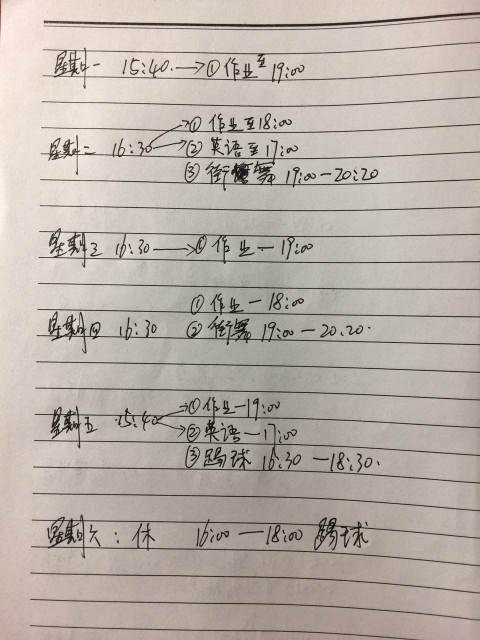 星期一 15:40.→① 作业至19:00
① 作业至18:00
星期二 16:30 → ② 英语至17:00
③ 街舞 19:00-20:20
星期三 16:30 →① 作业-19:00
① 作业-18:00
星期四 16:30 ② 街舞 19:00-20:20.
① 作业-19:00
星期五 15:40 → ② 英语-17:00
③ 踢球 16:30-18:30.
星期六: 休 16:00-18:00 踢球